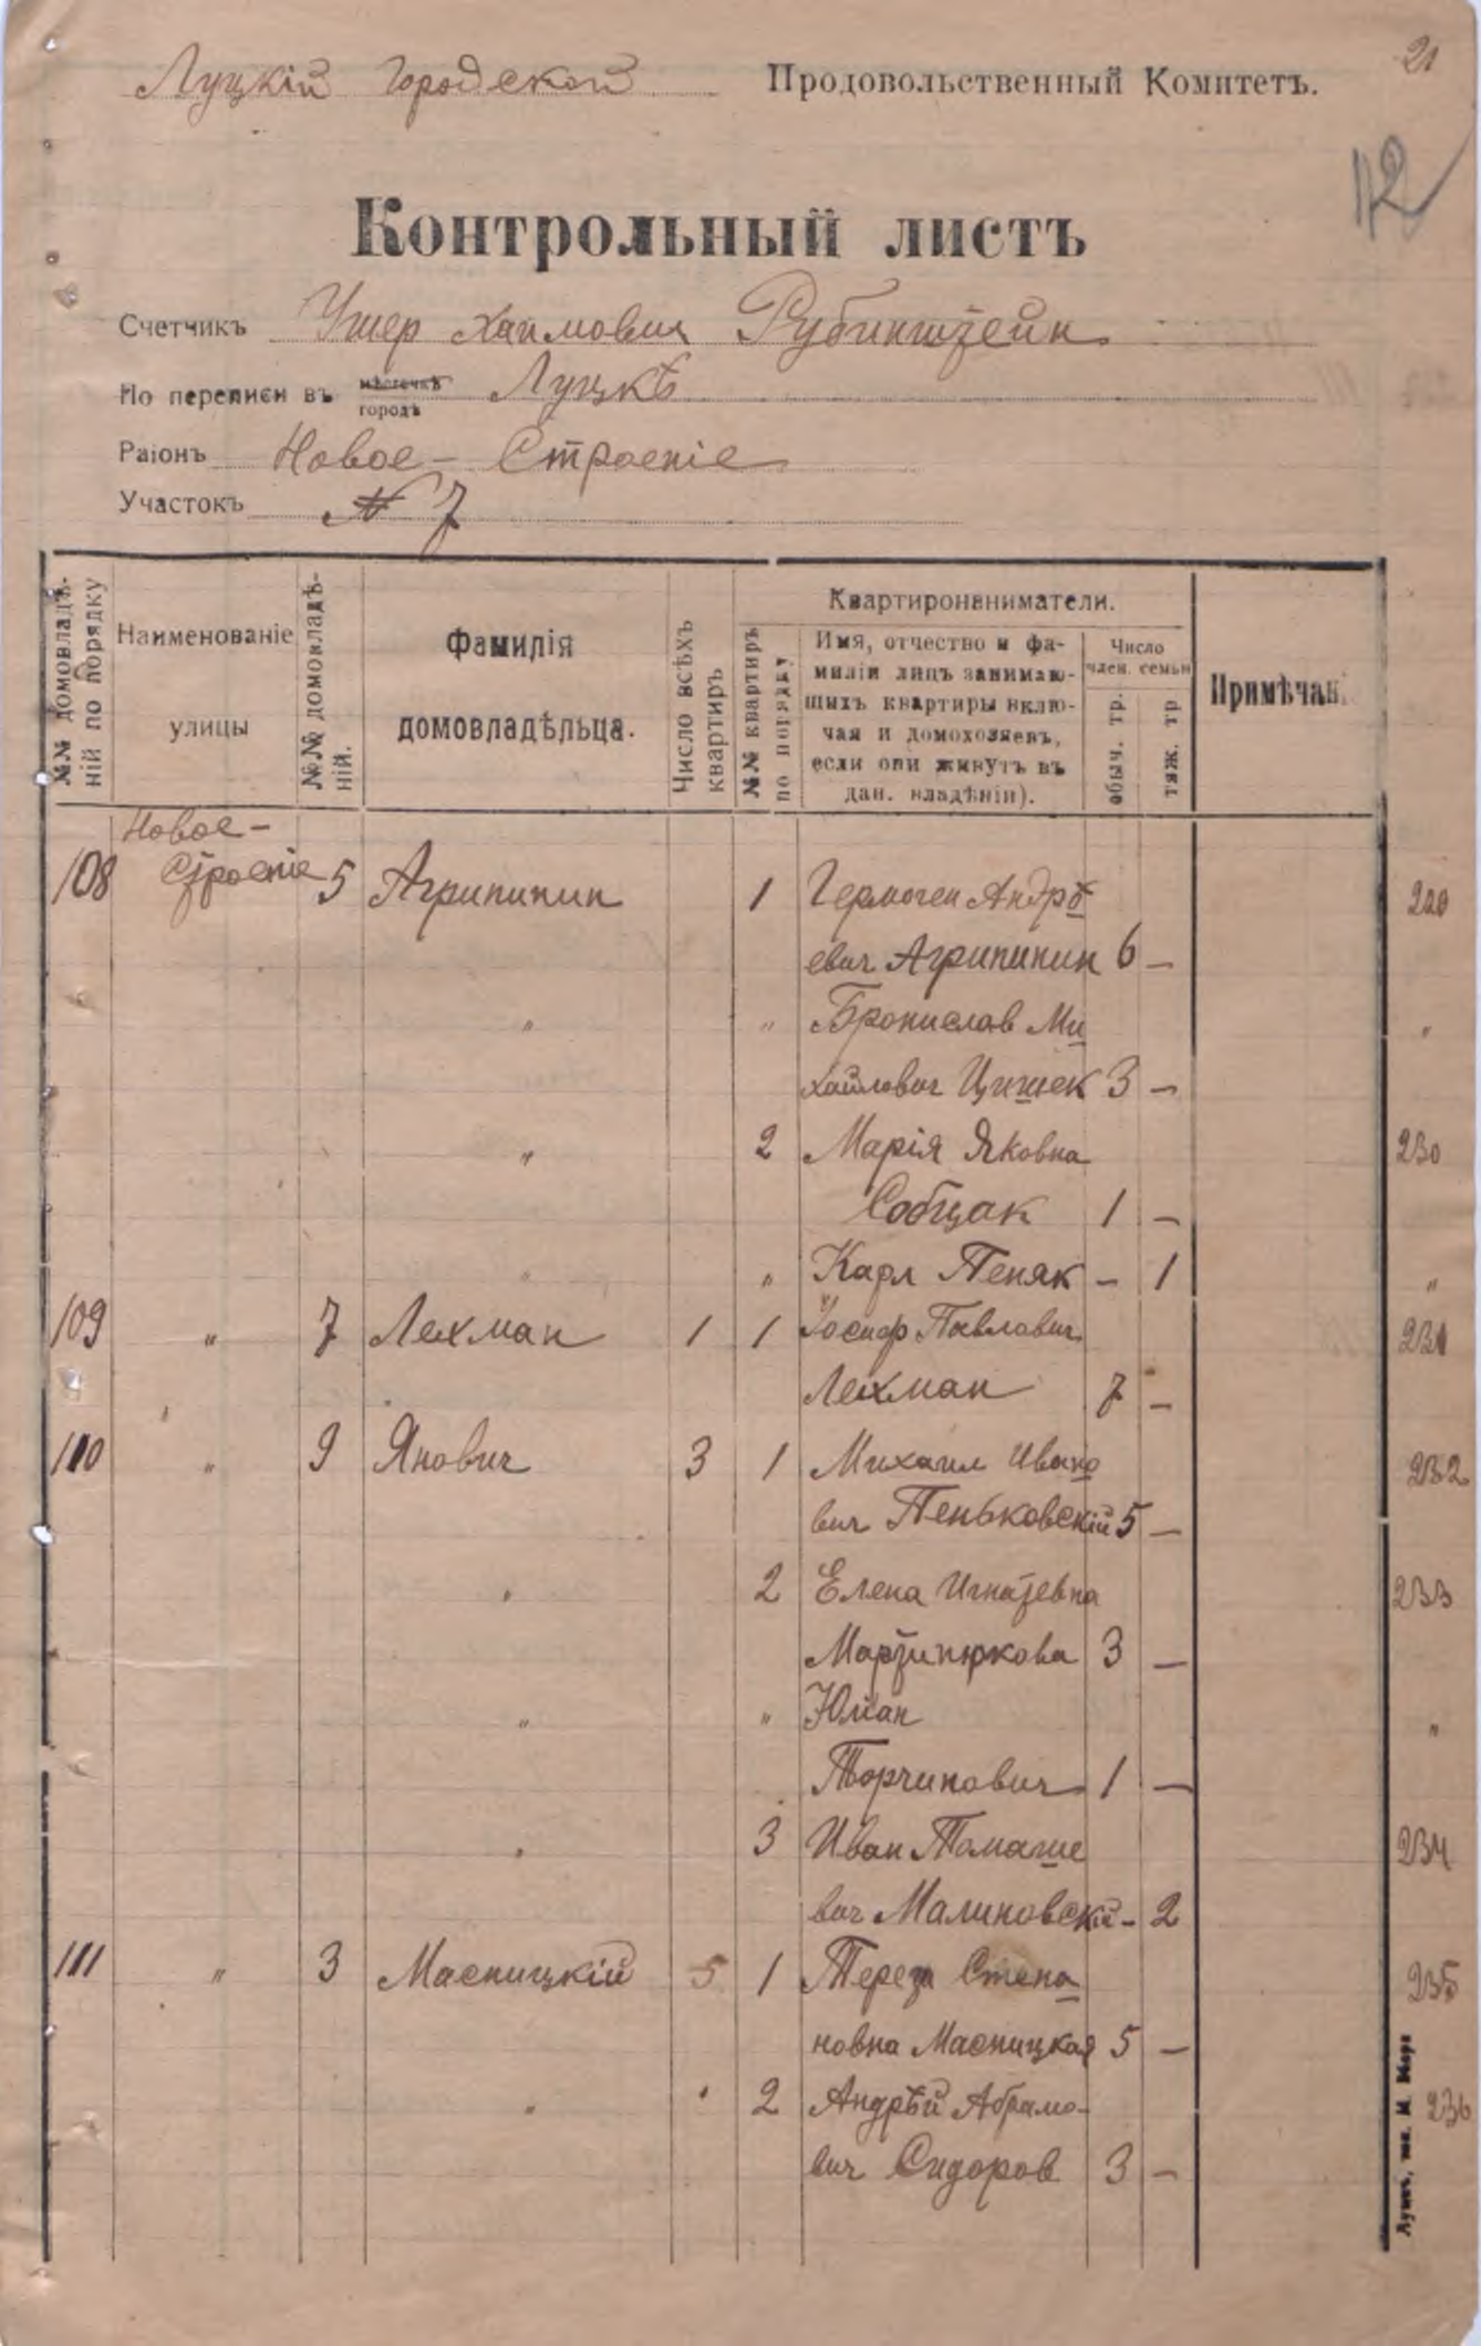 21
Луцкій Городской Продовольственный Комитетъ.
12
Контрольный листъ
Счетчикъ Ушер Хаимович Рубинштейн
По переписи въ мѣстечкѣ городѣ Луцкѣ
Раіонъ Новое-Строеніе
Участокъ № 7
№№ домовладѣ-
ній по порядку
Наименованіе
улицы
№№ домовладѣ-
ній.
Фамилія
домовладѣльца.
Число всѣхъ
квартиръ
Квартиронаниматели.
№№ квартиръ
по порядку
Имя, отчество и фа-
милія лицъ занимаю-
щихъ квартиры вклю-
чая и домохозяевъ,
если они живутъ въ
дан. владѣніи).
Число
член. семьи
обыч. тр.
тяж. тр
Примѣчан
Новое-
108 Строеніе 5 Агрипинин 1 Гермоген Андрѣ
евич Агрипинин 6 —
" " Бронислав Ми "
хайлович Цишек 3 —
" 2 Марія Яковна 230
Собцак 1 —
" " Карл Пеняк — 1 "
109 " 7 Лехман 1 1 Іосиф Павлович 231
Лехман 7 —
110 " 9 Янович 3 1 Михаил Ивано 232
вич Пеньковскій 5 —
" 2 Елена Игнатевна 233
Мартинюкова 3 —
" " Юліан "
Торчинович 1 —
" 3 Иван Томаше 234
вич Малиновскій — 2
111 " 3 Масницкій 5 1 Тереза Степа 235
новна Масницкая 5 —
" " 2 Андрѣй Абрамо- 236
вич Сидоров 3 —
Луцкъ, тип.